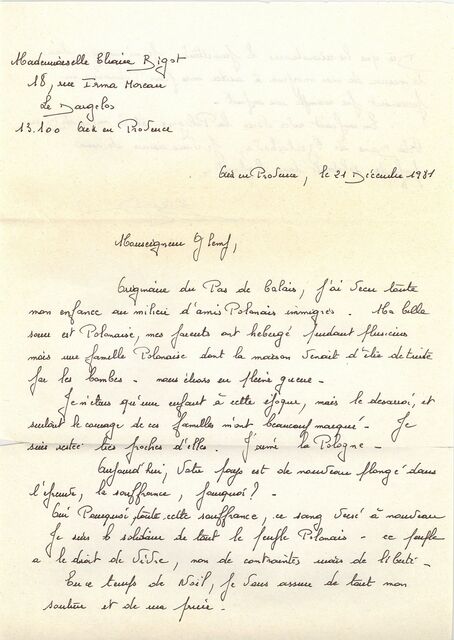 Mademoiselle Eliane Rigot
18, rue Irma Moreau
Le Dargelos
13.100 Aix en Provence
Aix en Provence, le 21 Décembre 1981
Monseigneur Glemp,
Originaire du Pas de Calais, j'ai vécu toute
mon enfance au milieu d'amis Polonais immigrés. Ma belle
sœur est Polonaise, mes parents ont hébergé pendant plusieurs
mois une famille Polonaise dont la maison venait d'être détruite
par les bombes - nous étions en pleine guerre -
Je n'étais qu'une enfant à cette époque, mais le désarroi, et
surtout le courage de ces familles m'ont beaucoup marqué - Je
suis restée très proches d'elles. J'aime la Pologne -
Aujourd'hui, votre pays est de nouveau plongé dans
l'épreuve, la souffrance, pourquoi ? -
Oui Pourquoi, toute cette souffrance, ce sang versé à nouveau
Je suis solidaire de tout le peuple Polonais - ce peuple
a le droit de vivre, non de contraintes mais de liberté -
En ce temps de Noël, je vous assure de tout mon
soutien et de ma prière -